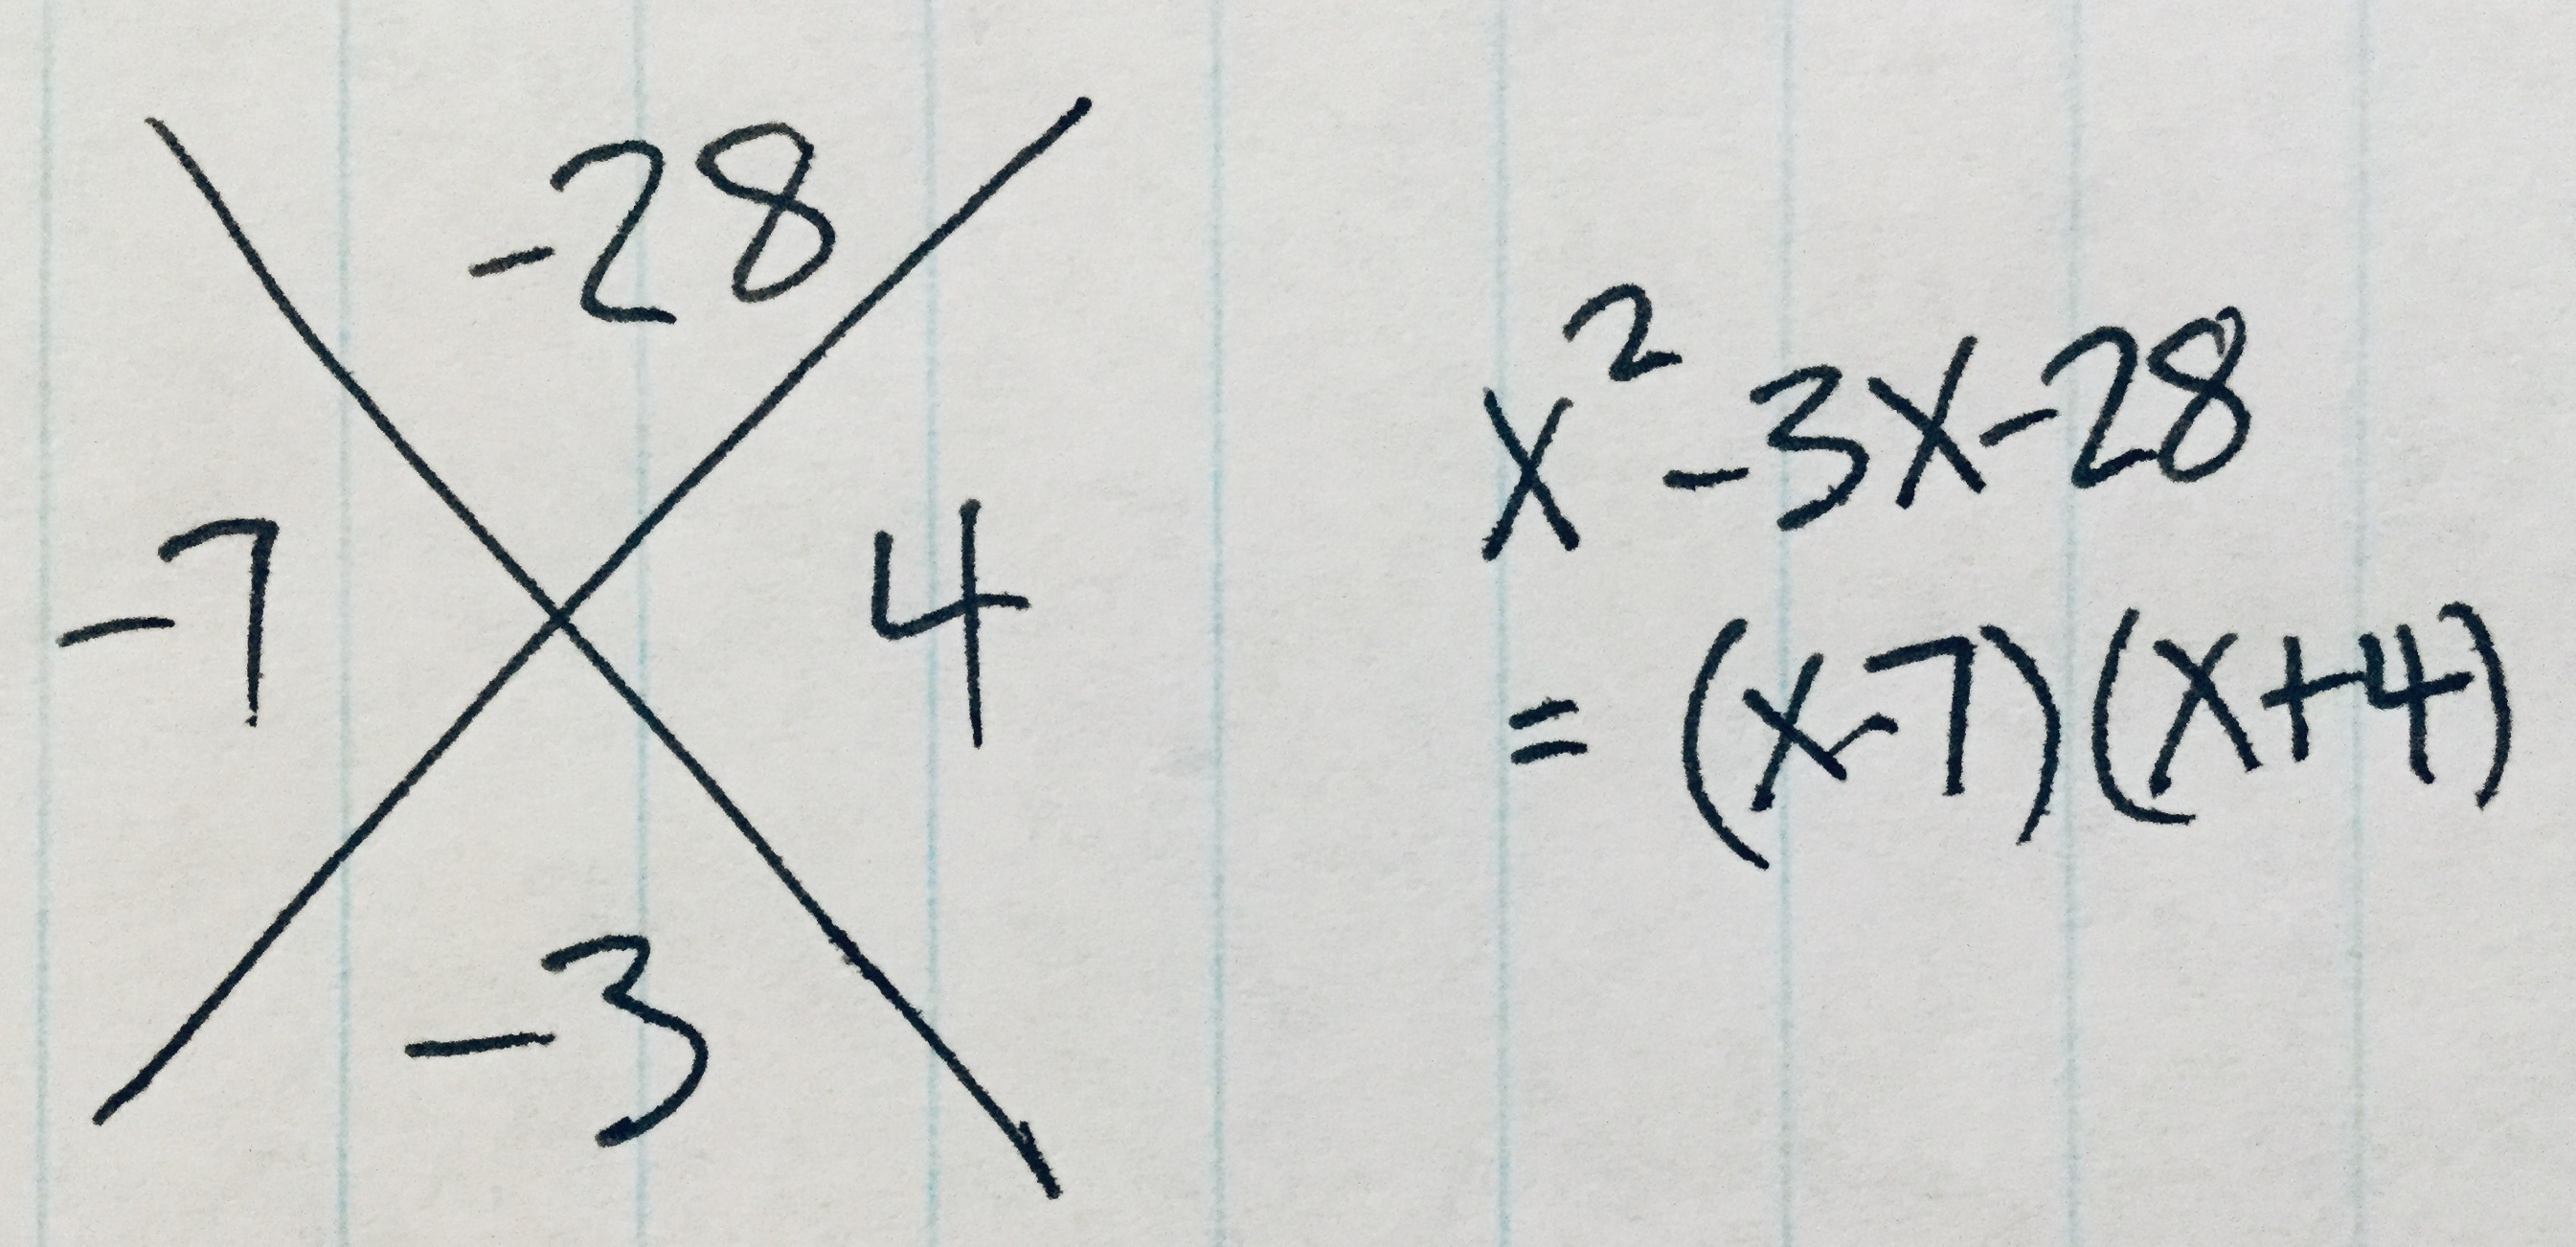 -28
-7 4
-3
x²-3x-28
=(x-7)(x+4)